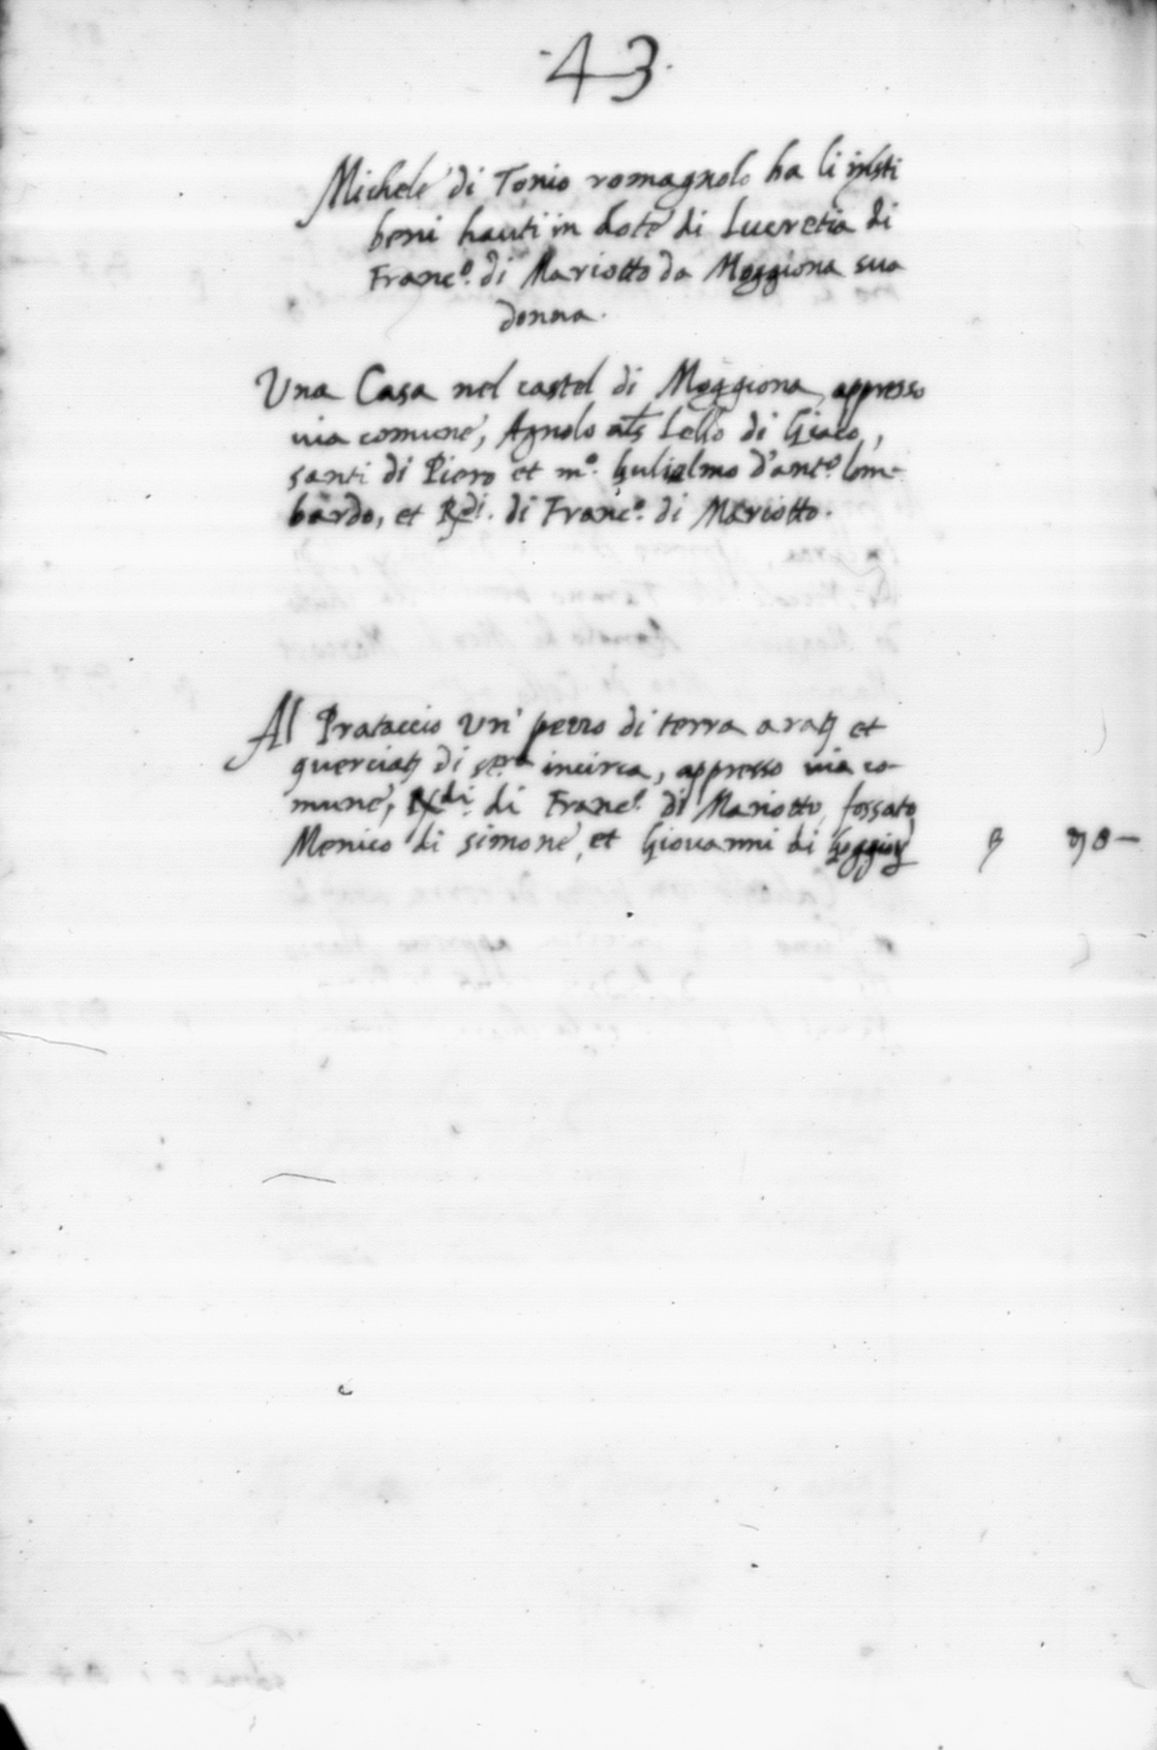 ·43·
Michele di Tonio romagnolo ha li infsti
beni hauti in dote di Lucretia di
Franc.º di Mariotto da Moggiona sua
donna.
Una Casa nel castel di Moggiona, appresso
via comune, Agnolo als Lello di Giaco,
santi di Piero et mº. Gulielmo d'antº. lom-
bardo, et Redi. di Francº. di Mariotto.
Al Prataccio Un' pezzo di terra arat et
querciat di incirca, appresso via co-
mune, Redi. di Franc.º di Mariotto, fossato,
Menico di simone, et Giovanni di